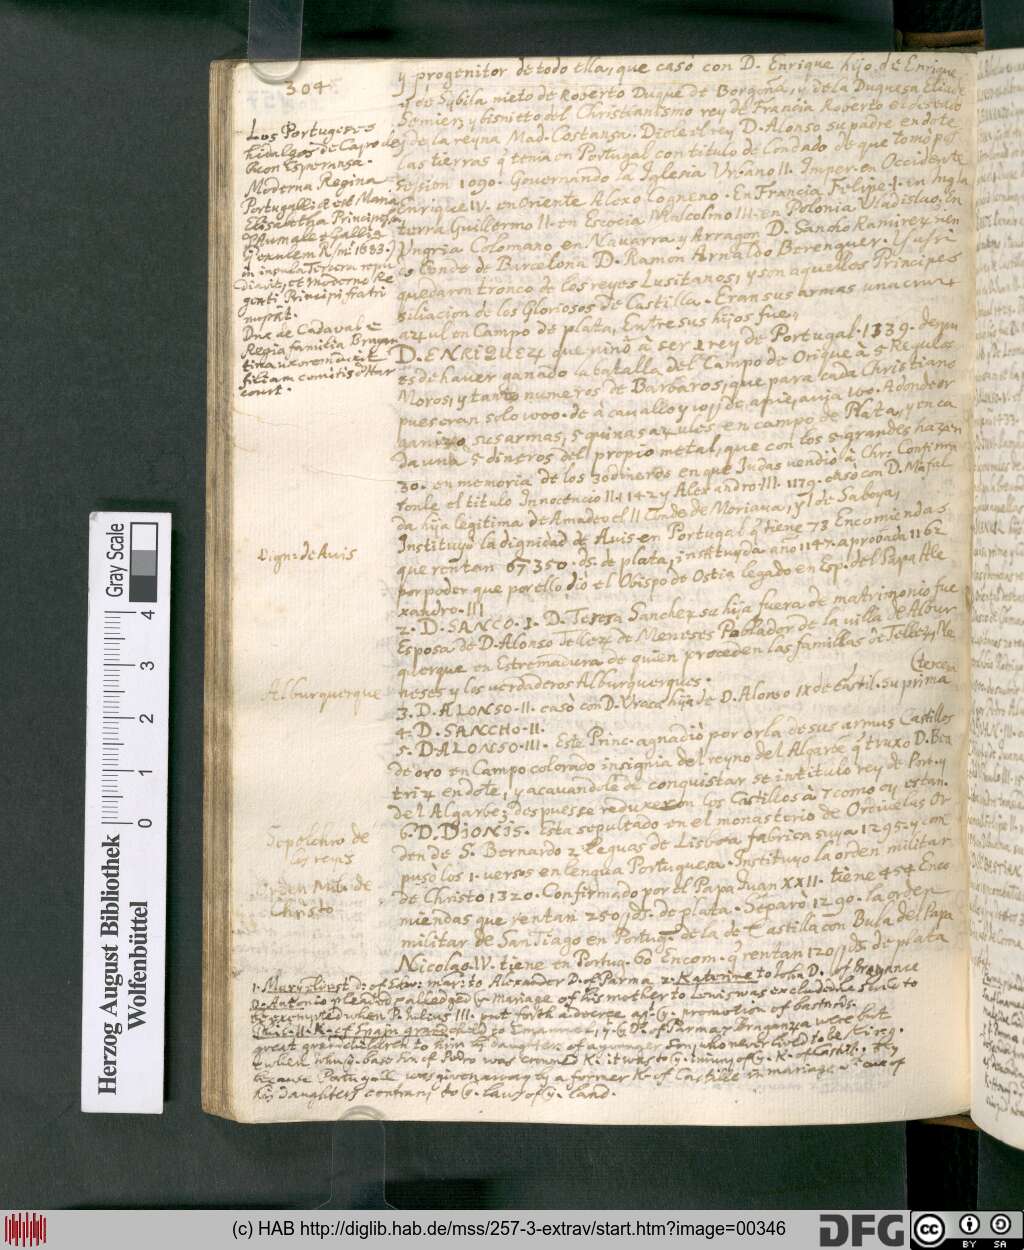 304
Los Portugeses
hidalgos de Capo de
buon Esperansa.
Moderna Regina
Portugalliæ est Maria
Elisabetha Principessa
d'Aumale è Gallia
in insula Tercera repu
diavit, et moderno Re
genti Principi fratri
nupsit.
Dux de Cadaval è
Regia familia Bragan
tina uxorem duxit
filiam comitis d'Har
court.
Dign: de Avis
Alburquerque
Sepolchro de
los reyes
Orden Milit: de
Christo
y progenitor de todo ellas, que caso con D. Enrique hijo de Enrique
y de Sybila nieto de Roberto Duque de Borgoña, y de la Duquesa
Semier, y bisnieto del Christianismo rey de Francia Roberto el
y de la reyna Mad. Costansa. Diole el rey D. Alonso su padre en dote
las tierras q tenia en Portugal con titulo de Condado de que tomò pos
session 1090. Governando la Iglesia Urbano II. Imper. en Occidente
Enrique IV. en Oriente Alexo Cogneno. En Francia Felipe I. en Ingla
terra Guillermo II. en Escocia Malcolmo III. en Polonia Vladislao, En
Ungria Colomano en Navarra y Arragon D. Sancho Ramirez, y en
Conde de Barcelona D. Ramon Arnaldo Berenguer.
quedaron tronco de los reyes Lusitanos, y son aquellos Principes
filiacion de los Gloriosos de Castilla. Eran sus armas una cruz
azul en Campo de plata, Entre sus hijos fue,
D. ENRIQUEZ que vino à ser 1 rey de Portugal. 1139. despu
es de haver ganado la batalla del Campo de Orique à 5 Regulos
Moros, y tanto numeros de Barbaros, que para cada Christiano
pues eran solo 1000. de à cavallo y 10 de apie, avia 100. Adonde or
ganizò sus armas, 5 quinas azules en campo de Plata, y en ca
da una 5 dineros del propio metal, que con los 5 grandes hazen
30. en memoria de los 30 dineros en que Judas vendiò à Chr. Confirma
ronle el titulo Innocencio II. 1142 y Alexandro III. 1179. casò con D. Mafal
da hija legitima de Amadeo el II Conde de Moriana, y I de Saboya,
Instituyò la dignidad de Avis en Portugal q tiene 73 Encomiendas
que rentan 67350. ds. de plata, instituyda año 1147. aprobada 1162
por poder que por ello dio el Obispo de Ostia legado en Esp. del Papa Ale
xandro III
2. D. SANCO. I. D. Teresa Sanchez su hija fuera de matrimonio fue
Esposa de D. Alonso Tellez de Meneses Poblador de la villa de Albur
querque en Estremadura de quien proceden las familias de Tellez, Me
neses y los verdaderos Alburquerques. (tercera
3. D. ALONSO. II. caso con D. Vraca hija de D. Alonso IX de Castil. su prima
4. D. SANCHO. II.
5. D. ALONSO. III. Este Princ. agnadiò por orla de sus armas Castillos
de oro en Campo colorado insignia del reyno del Algarbe q truxo D. Bea
triz en dote, y acavandole de conquistar se intitulo rey de Port. y
del Algarbe; despues se reduxeron los Castillos à 7 como oy estan.
6. D. DJONJS. Esta sepultado en el monasterio de Ordivelas Or
den de S. Bernardo 2 leguas de Lisboa fabrica suya 1295. y com
puso los 1. versos en lengua Portuguesa. Instituyo la orden militar
de Christo 1320. Confirmado por el Papa Juan XXII. tiene 454 Enco
miendas que rentan 250 ds. de plata. Separò 1290. la orden
militar de San Tiago en Portug. de la de Castilla con Bula del Papa
Nicolao. IV. tiene en Portug. 60 Encom. q rentan 120 ds. de plata
1. Mary eldest d. of Edw. marr. to Alexander D. of Parma 2. Katerine to John D. of Bragance
D. Antonio pleaded & alledged y. mariage of his mother to Lewis was excluded & said to
be exempted when P. Julius III. put forth a decree ag. y. promotion of bastards.
Phil. II. K. of Spain grandchild to Emanuel, & y. Ds. of Parma & Braganza were but
great grandchildren to him by daughters of a younger Son, who never lived to be King.
& when John y. base son of Pedro was crownd K. it was to y. injury of y. K. of Castil. they
because Portugall was given away by a former K. of Castille in mariage w. one of
his daughters contrary to y. law of y. land.
Herzog August Bibliothek
Wolfenbüttel
Gray Scale
0 1 2 3 4
(c) HAB http://diglib.hab.de/mss/257-3-extrav/start.htm?image=00346
DFG
cc
BY SA